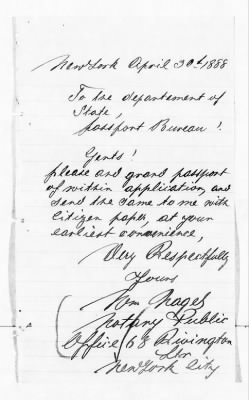 New York April 30th 1888
To the departement of
State,
passport Bureau!
Gents!
please and grand passport
of within application, and
send the same to me with
Citizen paper, at your
earliest convenience,
Very Respectfully
Yours
Wm Nagel
Notary Public
Office 68 Rivington
Str
New York City